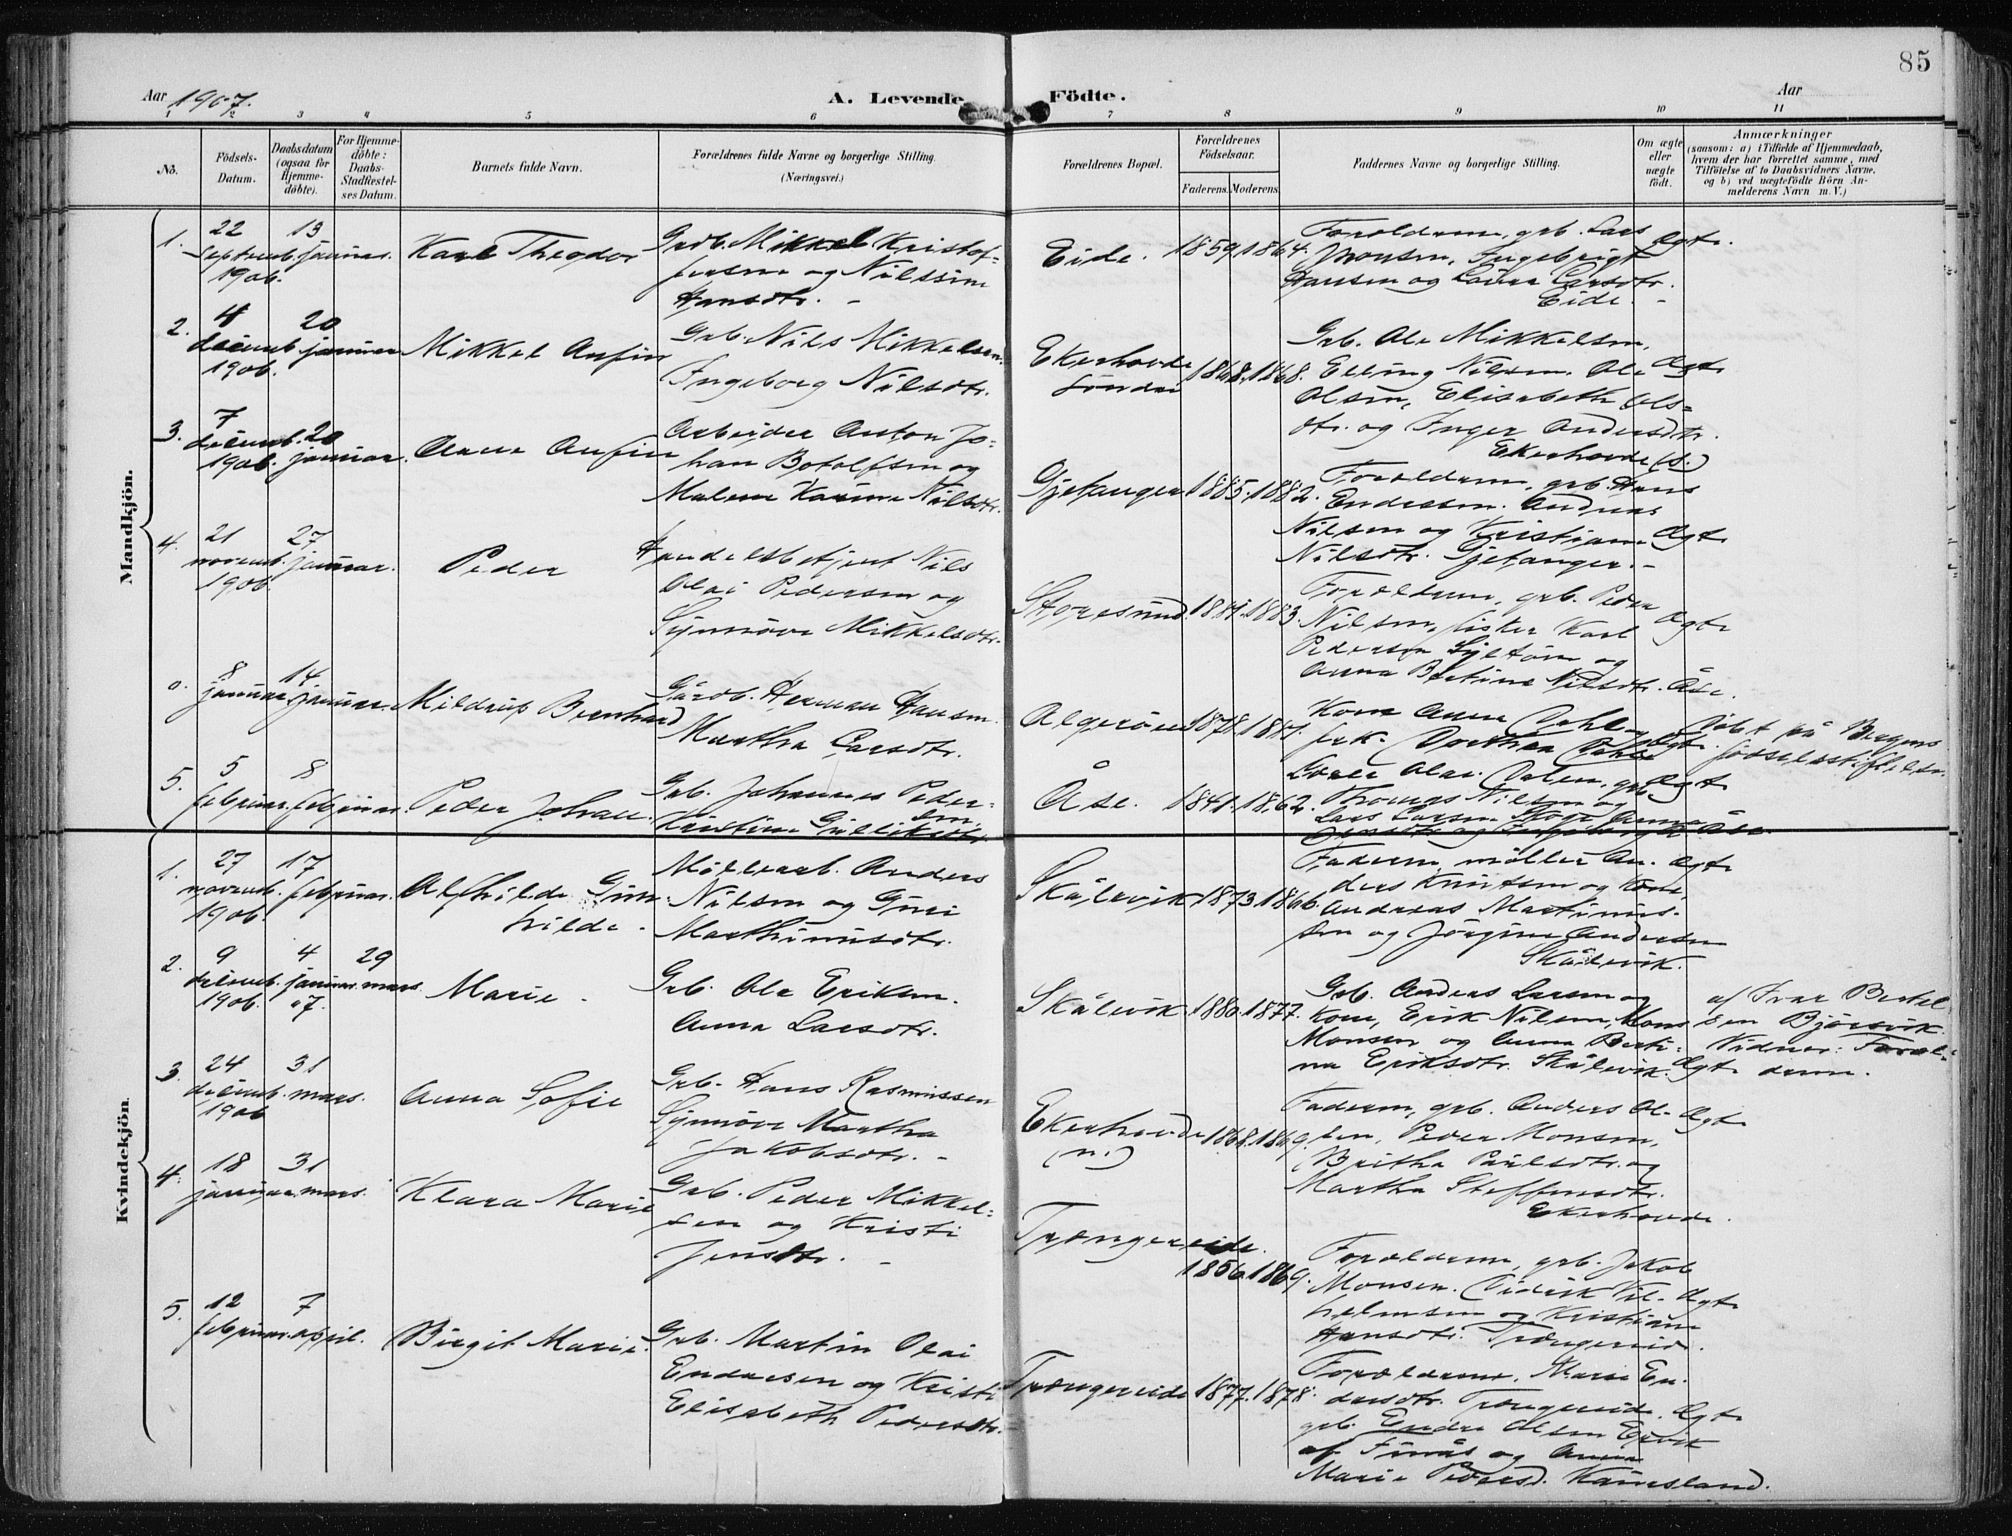 85
Aar 1907.
A. Levende Födte.
Aar
1 2 3 4 5 6 7 8 9 10 11
No.
Födsels-Datum.
Daabsdatum (ogsaa for Hjemme-döbte).
For Hjemme-döbte: Daabs-Stadfæstel-ses Datum.
Barnets fulde Navn.
Forældrenes fulde Navne og borgerlige Stilling.
(Næringsvei.)
Forældrenes Bopæl.
Forældrenes Födselsaar.
Faderens. Moderens.
Faddernes Navne og borgerlige Stilling.
Om ægte eller uægte födt.
Anmærkninger
(saasom: a) i Tilfælde af Hjemmedaab, hvem der har forrettet samme, med Tilföielse af to Daabsvidners Navne, og b) ved uægtefödte Börn An-melderens Navn m. V.)
Mandkjön.
1.
22 septemb. 1906.
13 januar.
Karl Theodor
Grdb. Mikkel Kristof-
fersen og Nilssine
Hansdtr. -
Eide. 1859. 1864.
Forældrene, grb. Lars
Monsen, Ingebrigt
Hansen og Lovise Larsdtr.
Eide. -
Ægte.
2.
4 decemb. 1906.
20 januar
Mikkel Anfin
Grb. Nils Mikkelsen.
Ingeborg Nilsdtr.
Ekerhovde
söndre
1868. 1868.
Grb. Ole Mikkelsen,
Elling Nilsen, Ole
Olsen, Elisabeth Ols-
dtr. og Inger Andersdtr.
Ekerhovde (s.)
Ægte
3.
7 decemb. 1906.
20 januar.
Arne Anfin
Arbeider Anton Jo-
han Botolfsen og
Malene Karine Nilsdtr.
Gjetanger 1885. 1882.
Forældrene, grb. Hans
Endresen. Andreas
Nilsen og Kristiane
Nilsdtr. Gjetanger. -
Ægte
4.
21 novemb. 1906.
27 januar.
Peder
Handelsbetjent Nils
Olai Pedersen og
Synnöve Mikkelsdtr.
Storesund. 1881. 1883.
Forældrene, grb. Peder
Nilsen, fisker Karl
Pedersen
og
Anna Bertine Nilsdtr. Åse.
Ægte
0.
8 januar
14 januar.
Mildrup Bernhard
Gårdb. Herman Hansen.
Martha Larsdtr.
Algeröen 1878. 1881.
Kone Anna Dahl og
frk. Dorthea Dahl
Ægte.
Döbt på Bergens
födselsstiftelse.
5.
5 februar.
8 februar.
Peder Johan
Grb. Johannes Peder-
sen,
Kristine Gulliksdtr.
Åse. 1841. 1862.
Thomas Nilsen og
Lars Larsen
Åse
Ægte
Kvindekjön.
1.
27 novemb. 1906.
17 februar.
Alfhilde Gun-
hilde.
Möllerarb. Anders
Nilsen og Guri
Marthinusdtr.
Skålevik 1873. 1866.
Faderen, möller An-
ders Knutsen og Kone,
Andreas Martinus-
sen og Jörgine Andersen
Skålevik.
Ægte
2.
9 decemb. 1906.
4 januar 07.
29 mars.
Marie.
Grb. Ole Eriksen.
Anna Larsdtr.
Skålevik. 1880. 1877.
Grb. Anders Larsen og
Kone, Erik Nilsen, Mons
Monsen og Anna Berti-
ne Eriksdtr. Skålevik.
Ægte
af Ivar Bertel
sen Björsvik.
Vidner: Foræl-
drene.
3.
24 decemb. 1906
31 mars.
Anna Sofie
Grb. Hans Rasmussen
Synnöve Martha
Jakobsdtr. -
Ekerhovde
(n.)
1868. 1869.
Faderen, grb. Anders Ol-
sen, Peder Monsen,
Britha Paulsdtr. og
Martha Steffensdtr.
Ekerhovde.
Ægte
4.
18 januar
31 mars.
Klara Marie
Grb. Peder Mikkel-
sen og Kristi
Jensdtr. -
Trængereide.
1856. 1869.
Forældrene, grb. Jakob
Monsen. Didrik Vil-
helmsen og Kristiane
Hansdtr. Trængereid.
Ægte
5.
12 februar.
7 april.
Birgit Marie.
Grb. Martin Olai
Endresen og Kristi
Elisabeth Pedersdtr.
Trængereide 1877. 1878.
Forældrene. Marie En-
dresdtr. Trængereide.
grb. Endre Olsen Ervik
af Finås og Anna
Marie Pedersd. Kaursland.
Ægte